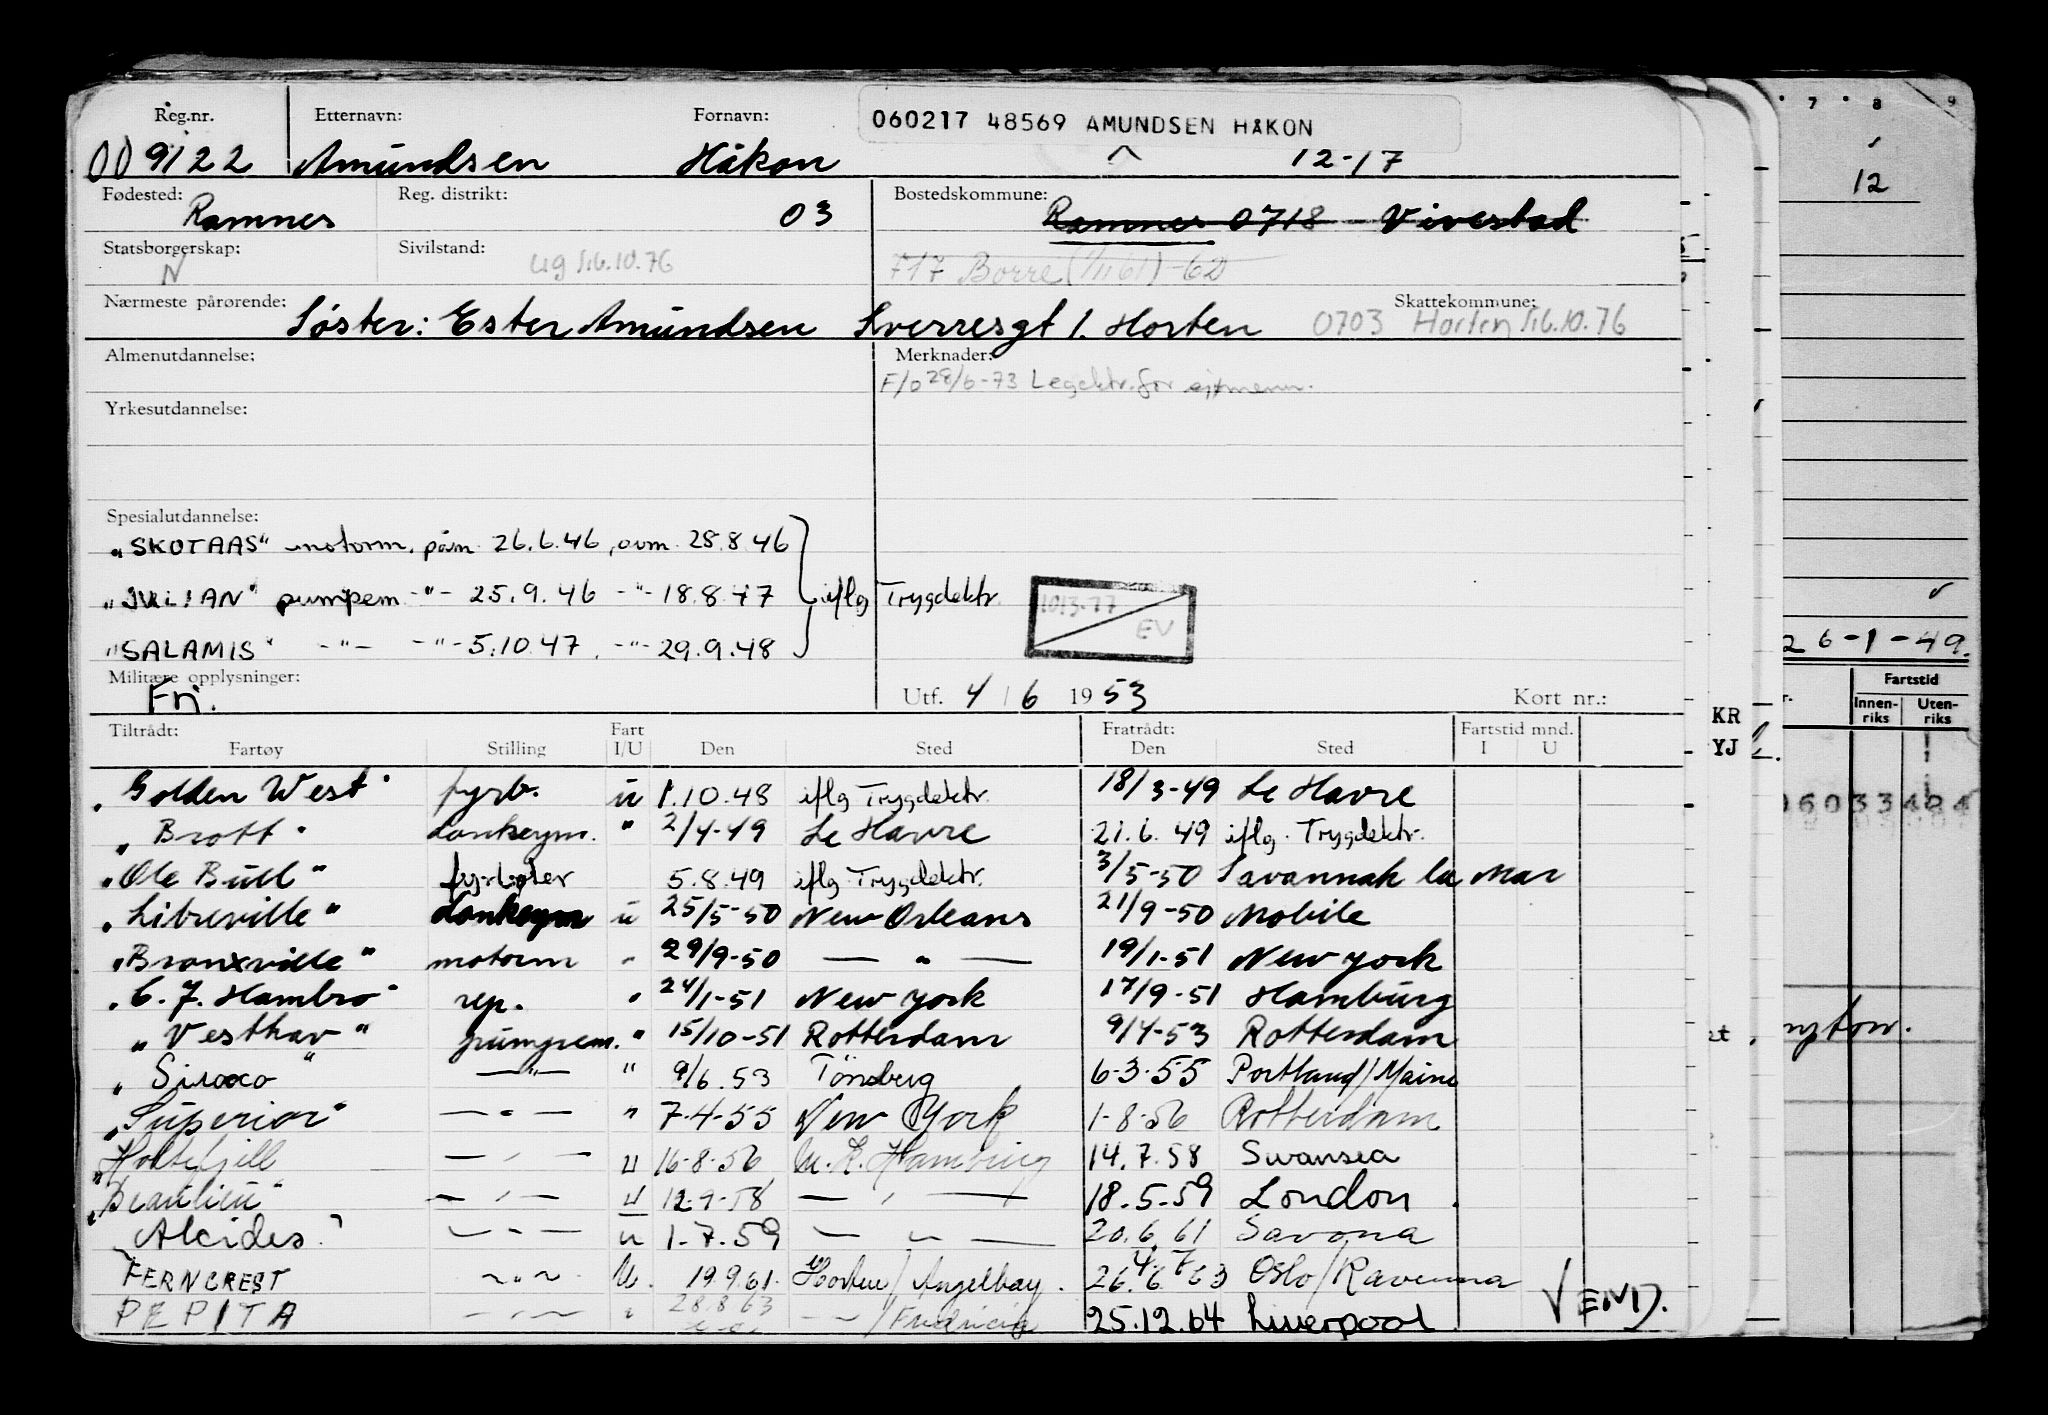 Reg.nr. Etternavn: Fornavn: 060217 48569 AMUNDSEN HÅKON
009122 Amundsen Håkon 12-17
Fødested: Ramnes Reg. distrikt: 03 Bostedskommune: Ramnes 0718 - Vivestad
Statsborgerskap: N Sivilstand: ug 16.10.76 717 Borre (1/1161) - 62
Nærmeste pårørende: Søster: Ester Amundsen Sverresgt 1. Horten Skattekommune: 0703 Horten 16.10.76
Almenutdannelse: Merknader:
F/o 28/6-73 Legektr. for sjømenn.
Yrkesutdannelse:
Spesialutdannelse:
"SKOTAAS" motorm. påm. 26.6.46, avm. 28.8.46
"JULIAN" pumpem. -"- 25.9.46 -"- 18.8.47 iflg Trygdektr.
"SALAMIS" -"- -"- 5.10.47, -"- 29.9.48
1013-77
EV
Militære opplysninger: Fri. Utf. 4/6 1953 Kort nr.:
Tiltrådt: Fart Fratrådt: Fartstid mnd.
Fartøy Stilling I/U Den Sted Den Sted I U
"Golden West" fyrb. u 1.10.48 iflg Trygdektr. 18/3-49 Le Havre
"Brott" donkeym. " 2/4-49 Le Havre 21.6.49 iflg. Trygdektr.
"Ole Bull" fyrbøter 5.8.49 iflg. Trygdektr. 3/5-50 Savannah la Mar
"Libreville" donkeym u 25/5-50 New Orleans 21/9-50 Mobile
"Bronxville" motorm " 29/9-50 — " — 19/1-51 New York
"C. J. Hambro" rep. " 24/1-51 New York 17/9-51 Hamburg
"Vesthav" pumpem. " 15/10-51 Rotterdam 9/4-53 Rotterdam
"Siroco" — " — " 9/6.53 Tönsberg 6-3-55 Portland/Maine
"Superior" — " — " 7-4-55 New York 1-8-56 Rotterdam
"Holtefjell — " — u 16-8-56 Hamburg 14.7.58 Swansea
"Beaulieu" — " — u 12-9-58 — " — 18.5-59 London.
"Alcides" — " — u 1-7.59 — " — 20.6.61 Savona
FERNCREST — " — U. 19.9.61. Horten/Angelbay. 26.6.63 4.7 Oslo/Ravenna
PEPITA — " — " 28.8.63 — " —/Fredricia 25.12.64 Liverpool
VEND.
7 8 9
12
26-1-49.
Fartstid
Innen-riks Uten-riks
KR
YJ